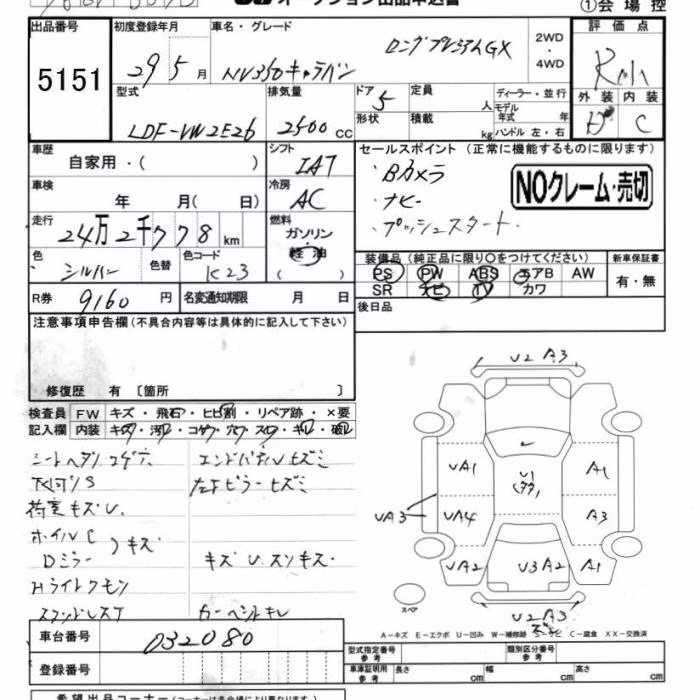 オークション出品申込書
①会場控
出品番号 初度登録年月 車名・グレード 評価点
5151 29 5月 NV350キャラバン ロングプレミアムGX 2WD・4WD
型式 排気量 ドア 定員 ディーラー・並行 外装 内装
LDF-VW2E26 2500 cc 5 人 モデル年式 年 C
形状 積載 kg ハンドル 左・右
車歴 自家用・( ) シフト IAT セールスポイント (正常に機能するものに限ります)
・Bカメラ
・ナビー
・プッシュスタート
NOクレーム・売切
車検 年 月( 日) 冷房 AC
走行 24万2千778km 燃料 ガソリン・軽油 ( )
色 シルバー 色替 色コード K23
装備品 (純正品に限り○をつけてください) 新車保証書
PS PW ABS エアB AW 有・無
SR ナビ TV カワ
R券 9160円 名変通知期限 月 日
後日品
注意事項申告欄(不具合内容等は具体的に記入して下さい)
修復歴 有 〔箇所 〕
検査員記入欄 FW キズ・飛石・ヒビ割・リペア跡・×要
内装 キズ・汚れ・コゲ・穴・スレ・キレ・破れ
シートヘタリコゲテ エンドパネルヒズミ
下回りS 左Fピラーヒズミ
荷室キズU.
ホイルC
Dミラー キズ キズU.スソキズ.
Hライトクモリ
カーペットキレ
U2 A3
UA1 U1 A1
UA3 UA4 A3
UA2 U3A2 A1
スペア
U2A3
A-キズ E-エクボ U-凹み W-補修跡 S-サビ C-腐食 XX-交換済
車台番号 032080
登録番号
型式指定番号 参考 類別区分番号 参考
車庫証明用 参考 長さ cm 幅 cm 高さ cm
希望出品コーナー(コーナーは各会場により異なります)